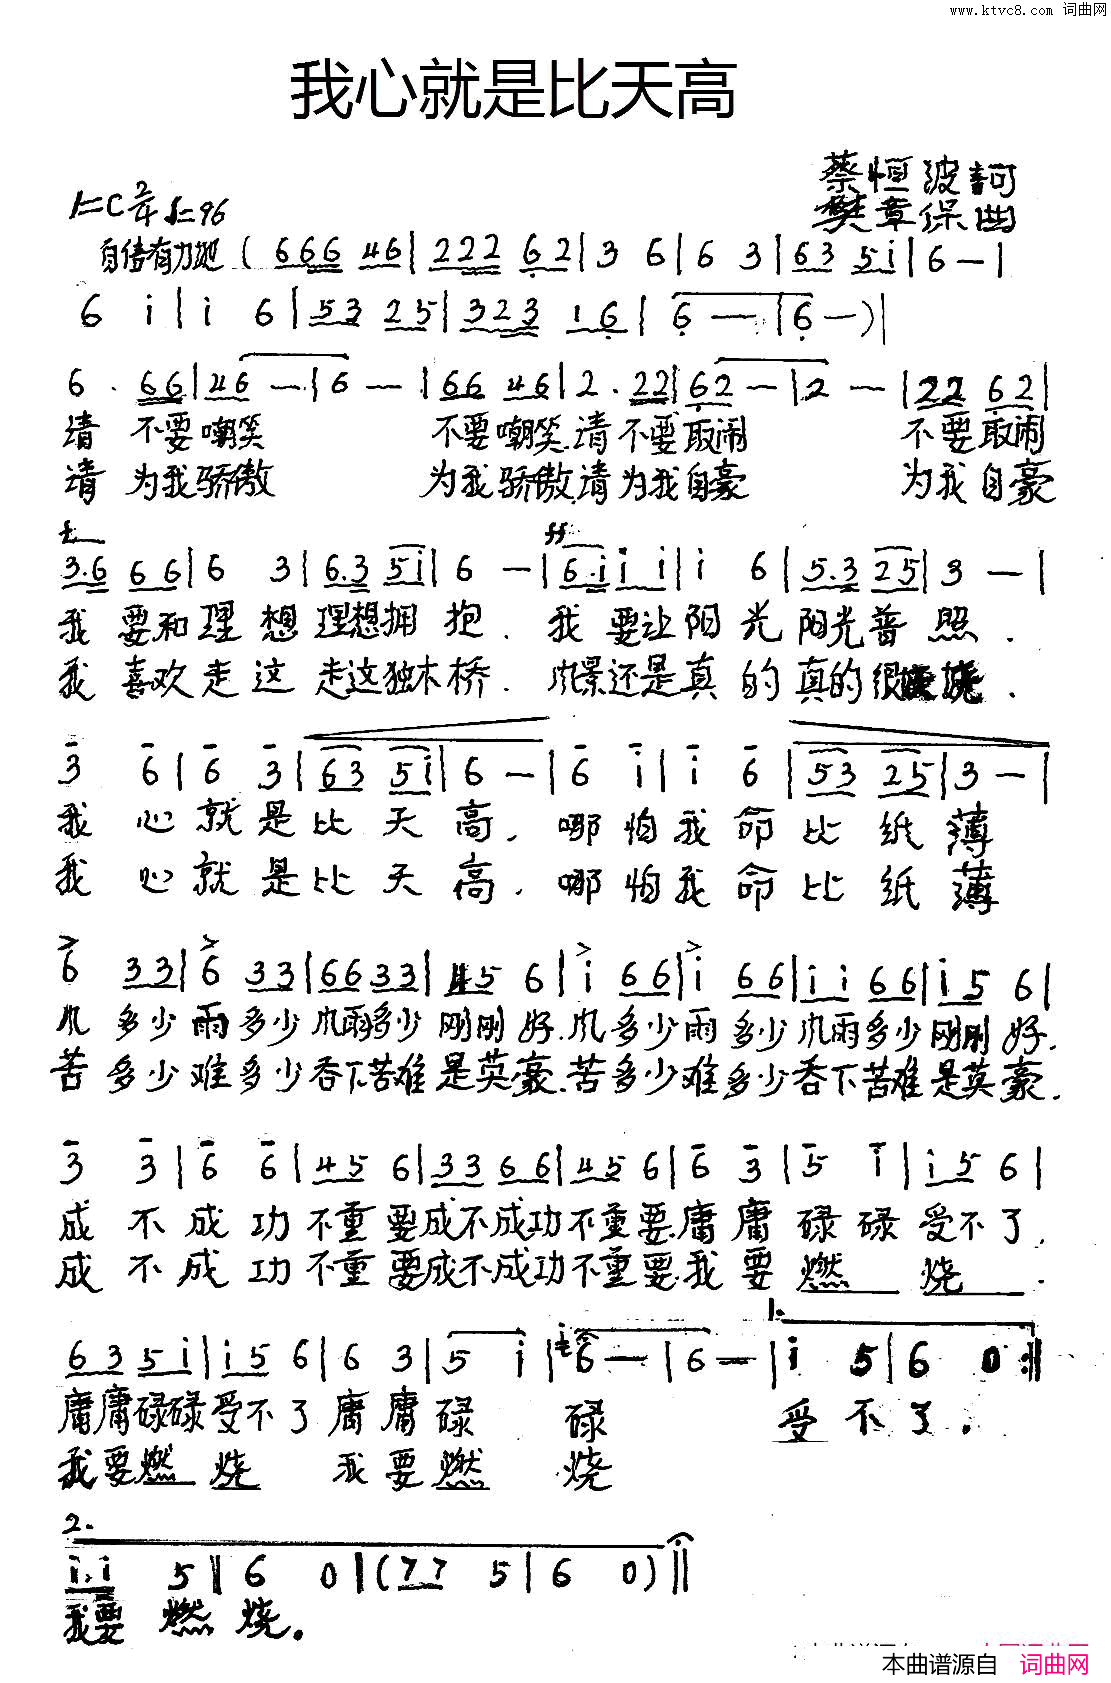 www.ktvc8.com 词曲网
我心就是比天高
蔡恒波詞
1=C 2/4 ♩=96
樊章保曲
自信有力地 ( 666 46 | 222 62 | 3 6 | 6 3 | 63 5i | 6 — |
6 i | i 6 | 53 25 | 323 16 | 6 — | 6 — ) |
6 . 66 | 46 — | 6 — | 66 46 | 2 . 22 | 62 — | 2 — | 22 62 |
请 不要嘲笑 不要嘲笑.请不要取闹 不要取闹
请 为我骄傲 为我骄傲.请为我自豪 为我自豪
f ff
3.6 66 | 6 3 | 6.3 5i | 6 — | 6.i i i | i 6 | 5.3 25 | 3 — |
我 要和理想理想拥抱. 我要让阳光阳光普照.
我喜欢走这走这独木桥. 风景还是真的真的很妖娆.
3 6 | 6 3 | 63 5i | 6 — | 6 i | i 6 | 53 25 | 3 — |
我心就是比天高. 哪怕我命比纸薄
我心就是比天高. 哪怕我命比纸薄
6 33 | 6 33 | 66 33 | 45 6 | i 66 | i 66 | i i 66 | i 5 6 |
风多少雨多少风雨多少刚刚好.风多少雨多少风雨多少刚刚好.
苦多少难多少吞下苦难是英豪.苦多少难多少吞下苦难是英豪.
3 3 | 6 6 | 45 6 | 33 66 | 45 6 | 6 3 | 5 i | i 5 6 |
成不成功不重要成不成功不重要.庸庸碌碌受不了.
成不成功不重要成不成功不重要.我要燃 烧.
1.
63 5i | i5 6 | 6 3 | 5 i | 6 — | 6 — | i 5 | 6 0 :||
庸庸碌碌受不了庸庸碌 碌 受不了.
我要燃 烧 我要燃 烧
2.
i.i 5 || 6 0 | ( 77 5 | 6 0 ) ||
我要 燃 烧.
本曲谱源自 词曲网